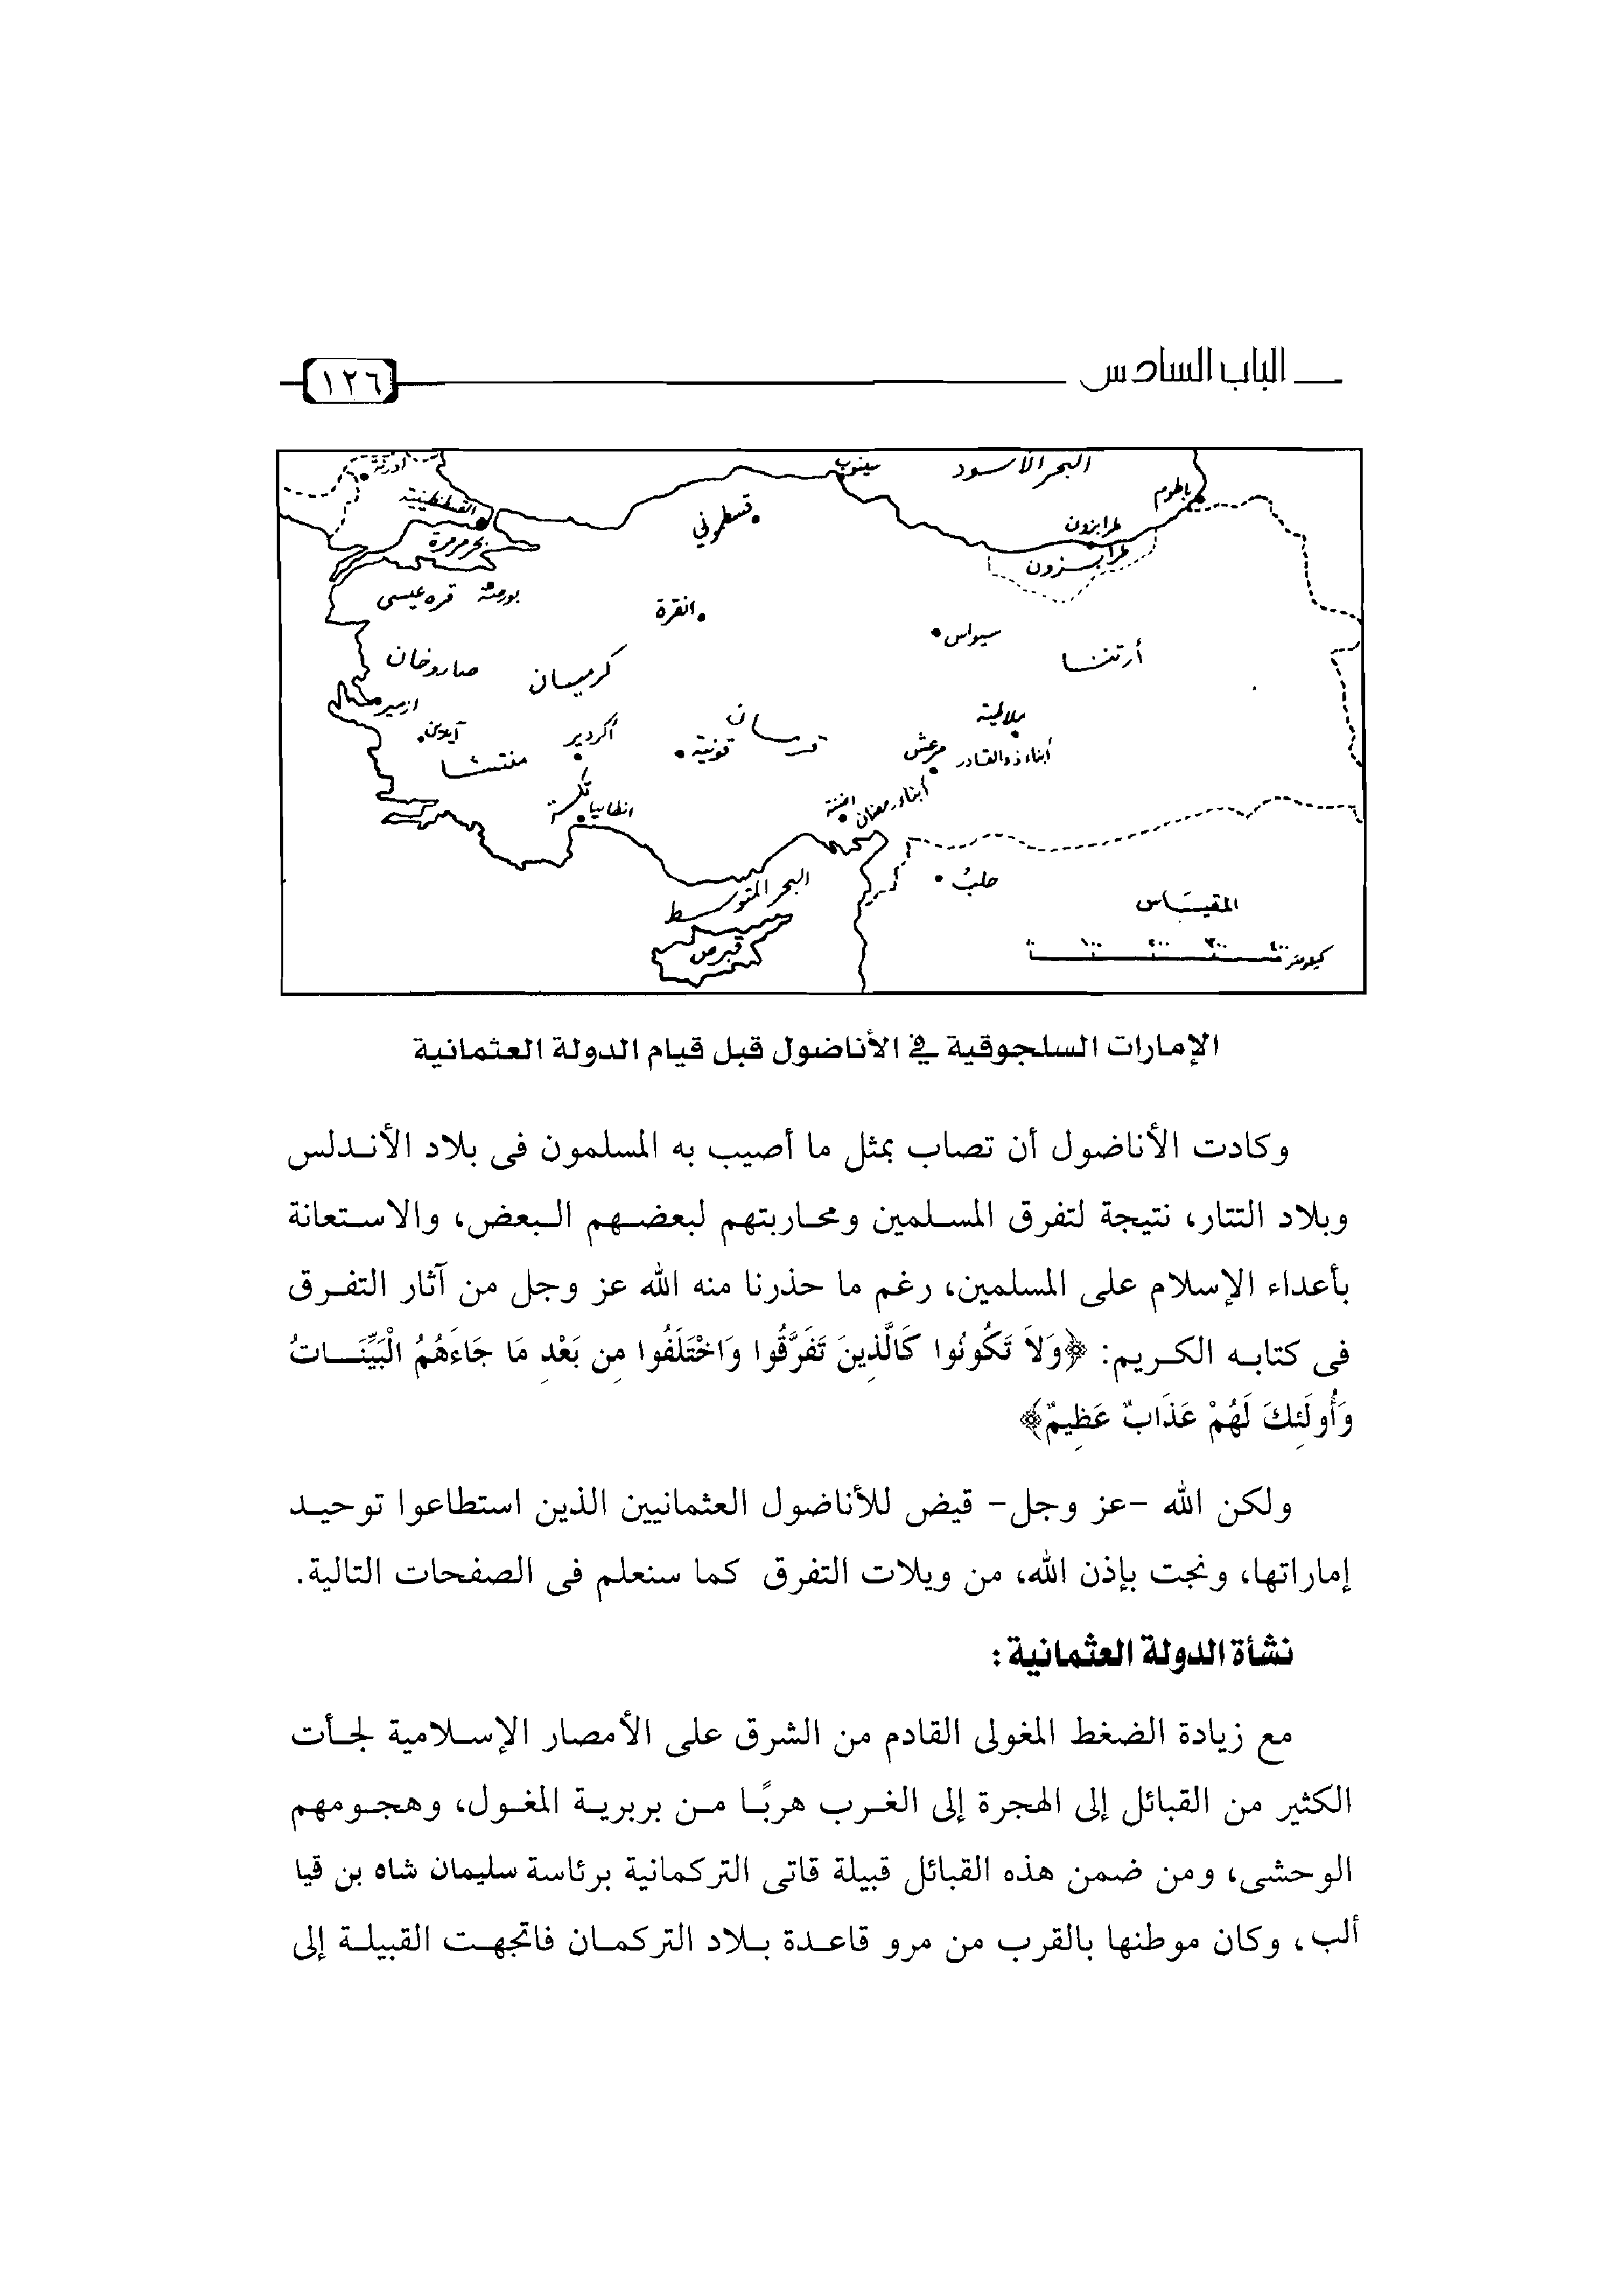 الباب السادس
١٢٦
البحر الأسود
سينوب
ادرنة
القسطنطينية
باطوم
قسطموني
طرابزون
بحر مرمرة
طرابزون
بورصة
قره عيسى
انقرة
سيواس
أرتنا
صاروخان
كرميان
ازمير
ملاطية
آيدين
أكردير
قونية
مرعش
أبناء ذو القادر
منتشا
تكة
انطاليا
اضنة
أبناء رمضان
حلب
البحر المتوسط
قبرص
المقياس
٠ ١٠٠ ٢٠٠ ٣٠٠ ٤٠٠ كيلومتر
الإمارات السلجوقية في الأناضول قبل قيام الدولة العثمانية
وكادت الأناضول أن تصاب بمثل ما أصيب به المسلمون فى بلاد الأندلس
وبلاد التتار، نتيجة لتفرق المسلمين ومحاربتهم لبعضهم البعض، والاستعانة
بأعداء الإسلام على المسلمين، رغم ما حذرنا منه الله عز وجل من آثار التفرق
فى كتابه الكريم: ﴿وَلاَ تَكُونُوا كَالَّذِينَ تَفَرَّقُوا وَاخْتَلَفُوا مِن بَعْدِ مَا جَاءَهُمُ الْبَيِّنَاتُ
وَأُولَئِكَ لَهُمْ عَذَابٌ عَظِيمٌ﴾
ولكن الله -عز وجل- قيض للأناضول العثمانيين الذين استطاعوا توحيد
إماراتها، ونجت بإذن الله، من ويلات التفرق كما سنعلم فى الصفحات التالية.
نشأة الدولة العثمانية:
مع زيادة الضغط المغولى القادم من الشرق على الأمصار الإسلامية لجأت
الكثير من القبائل إلى الهجرة إلى الغرب هربًا من بربرية المغول، وهجومهم
الوحشى، ومن ضمن هذه القبائل قبيلة قاتى التركمانية برئاسة سليمان شاه بن قيا
ألب، وكان موطنها بالقرب من مرو قاعدة بلاد التركمان فاتجهت القبيلة إلى